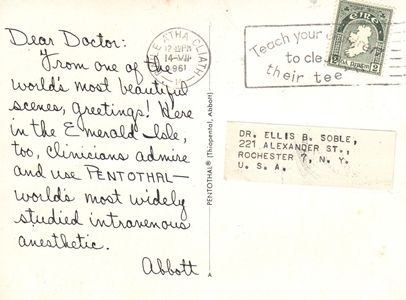 Dear Doctor:
From one of the
world's most beautiful
scenes, greetings! Here
in the Emerald Isle,
too, clinicians admire
and use PENTOTHAL—
world's most widely
studied intravenous
anesthetic.
Abbott
PENTOTHAL® (Thiopental, Abbott)
A
ATHA CLIATH
14-VII
1961
Teach your
to cle
their tee
EIRE
2 2
DR. ELLIS B. SOBLE,
221 ALEXANDER ST.,
ROCHESTER 7, N. Y.
U. S. A.